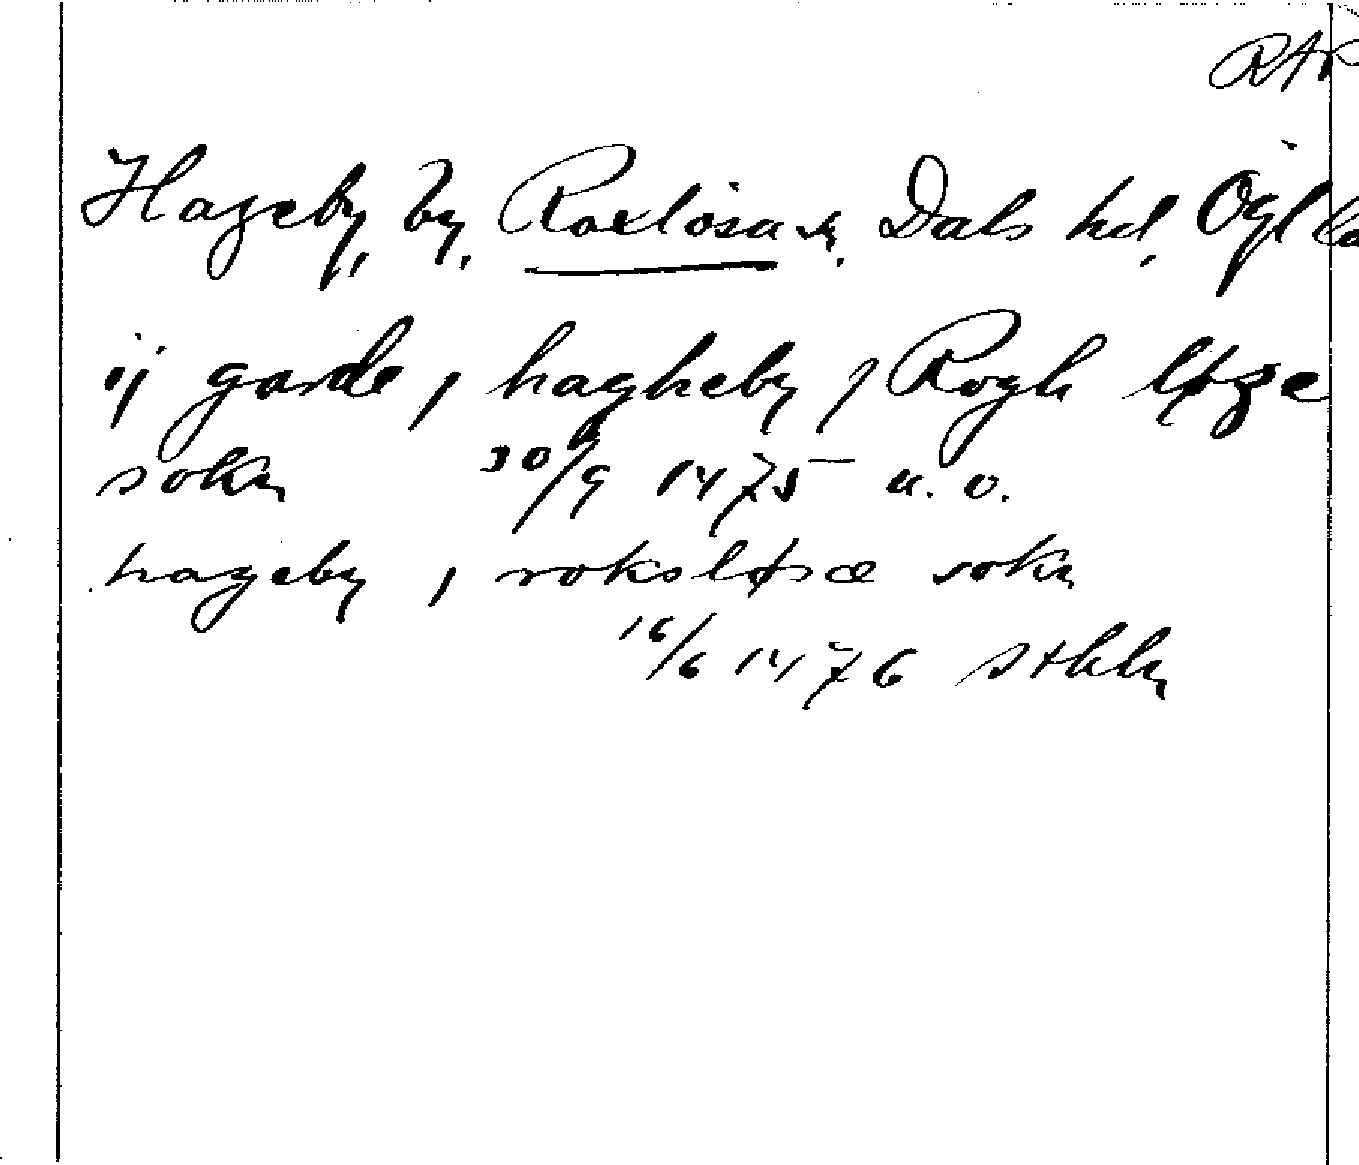 RAP
Hageby, by, Roxlösa sn. Dals hd, Ögtl
ij garde, hagheby j Rogh løze
sokn 30/9 1475 u. o.
hageby, roksløsæ sokn
16/6 1476 Sthlm